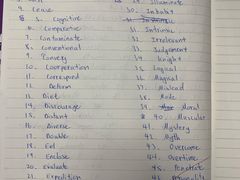 4. Cease
5. Cognitive
6. Comparative
7. Contaminate
8. Conventional
9. Convery
10. Cooperation
11. Correspond
12. Deform
13. Diet
14. Discourage
15. Distant
16. Diverse
17. Double
18. Eel
19. Enclose
20. evaluate
21. Expedition
29. Illuminate
30. Inhabit
31. Intrinsic
32. Irrelevant
33. Judgement
34. Knight
35. Logical
36. Magical
37. Mislead
38. Mode
39. Moral
40. Muscular
41. Mystery
42. Myth
43. Overcome
44. Overtime
45. Penetrate
46. Personality